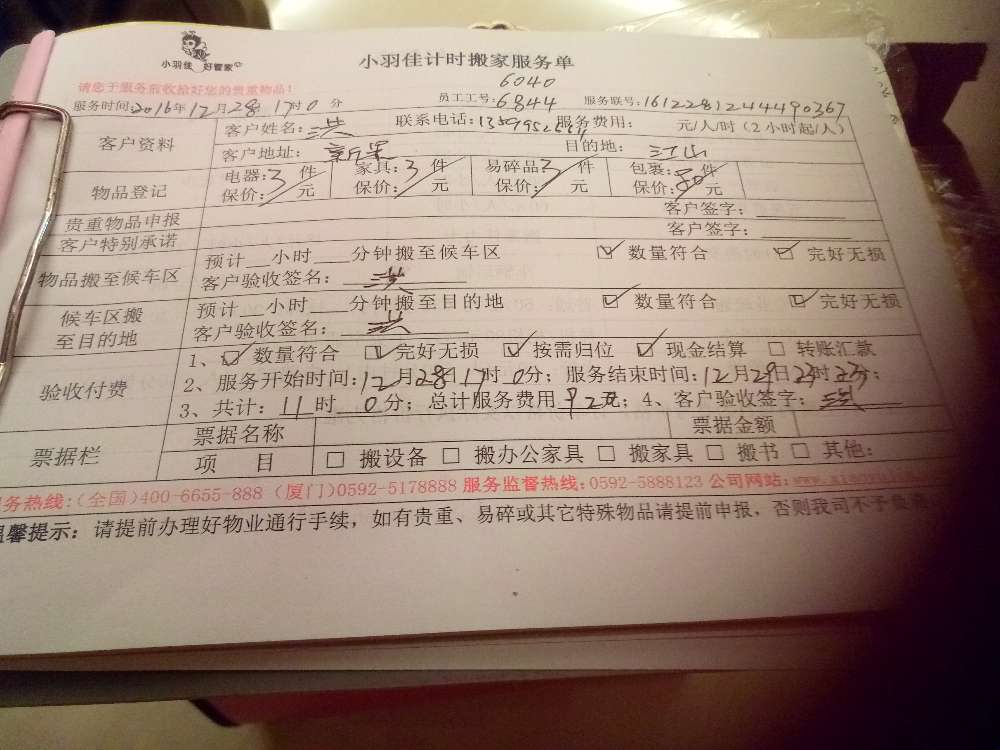 小羽佳 好管家
小羽佳计时搬家服务单
请您于服务前收捡好您的贵重物品!
6040
服务时间:2016年12月28日17时0分 员工工号:6844 服务联号:161228124449 0367
客户资料 客户姓名:洪 联系电话: 服务费用: 元/人/时(2小时起/人)
客户地址: 目的地:江山
物品登记 电器:3件 家具:3件 易碎品:3件 包裹:80件
保价: 元 保价: 元 保价: 元 保价: 元
贵重物品申报 客户签字:
客户特别承诺 客户签字:
物品搬至候车区 预计__小时___分钟搬至候车区 ☑ 数量符合 ☑ 完好无损
客户验收签名:洪
候车区搬至目的地 预计__小时___分钟搬至目的地 ☑ 数量符合 ☑ 完好无损
客户验收签名:洪
验收付费 1、☑ 数量符合 ☑ 完好无损 ☑ 按需归位 ☑ 现金结算 □ 转账汇款
2、服务开始时间:12月28日17时0分;服务结束时间:12月29日23时33分;
3、共计:11时0分;总计服务费用 92元;4、客户验收签字:洪
票据栏 票据名称 票据金额
项 目 □ 搬设备 □ 搬办公家具 □ 搬家具 □ 搬书 □ 其他:
务热线:(全国)400-6655-888 (厦门)0592-5178888 服务监督热线:0592-5888123 公司网站:
温馨提示:请提前办理好物业通行手续,如有贵重、易碎或其它特殊物品请提前申报,否则我司不予